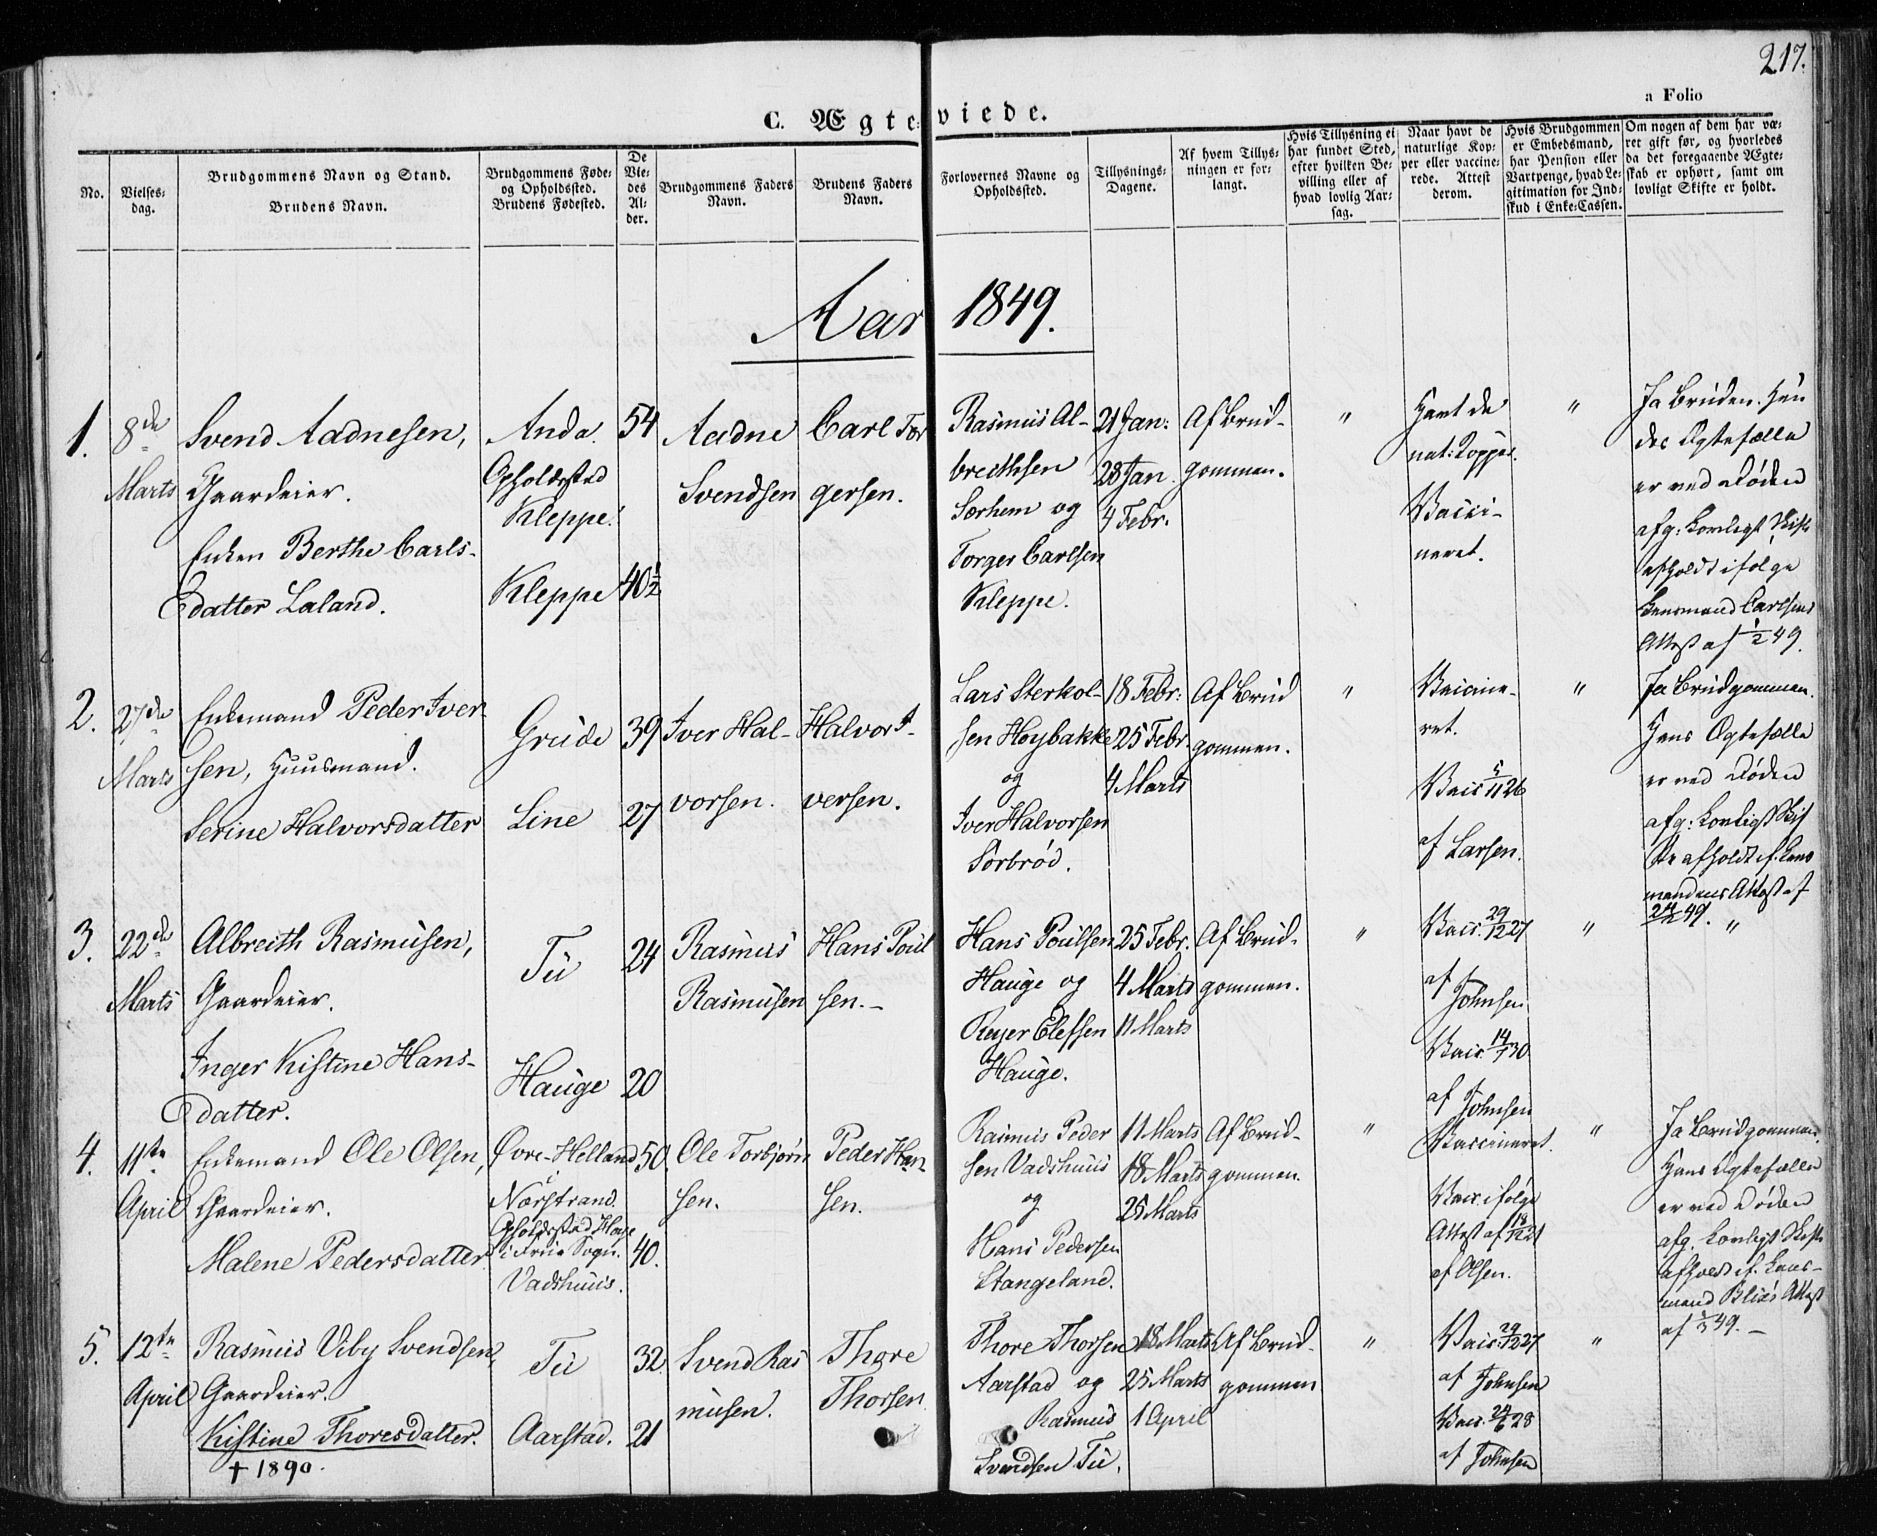 217.
a Folio
C. Ægteviede.
No.
Vielses-
dag.
Brudgommens Navn og Stand.
Brudens Navn.
Brudgommens Føde-
og Opholdssted.
Brudens Fødested.
De
Vie-
des
Al-
der.
Brudgommens Faders
Navn.
Brudens Faders
Navn.
Forlovernes Navne og
Opholdssted.
Tillysnings-
Dagene.
Af hvem Tillys-
ningen er for-
langt.
Hvis Tillysning ei
har fundet Sted,
efter hvilken Be-
villing eller af
hvad lovlig Aar-
sag.
Naar havt de
naturlige Kop-
per eller vaccine-
rede. Attest
derom.
Hvis Brudgommen
er Embedsmand,
har Pension eller
Vartpenge, hvad Le-
gitimation for Ind-
skud i Enke-Cassen.
Om nogen af dem har væ-
ret gift før, og hvorledes
da det foregaaende Ægte-
skab er ophørt, samt om
lovligt Skifte er holdt.
Aar 1849.
1.
8de
Marts
Svend Aadnesen,
Gaardeier.
Enken Berthe Carls-
datter Laland.
Anda.
Opholdssted
Kleppe.
Kleppe
54
40½
Aadne
Svendsen
Carl Tor
gersen.
Rasmus Al-
brecthsen
Sørhem og
Torger Carlsen
Kleppe.
21 Jan:
28 Jan
4 Febr.
Af Brud-
gommen.
"
Havt de
nat: Kopper.
Vacci-
neret.
"
Ja Bruden. Hen
des Ægtefælle
er ved Døden
afg: Lovligt Skifte
afholdt ifølge
Lensmand Carlsens
Attest af 1/2 49.
2.
27de
Marts
Enkemand Peder Iver
sen, Huusmand.
Serine Halvorsdatter
Grude
Line
39
27
Iver Hal-
vorsen.
Halvor I-
versen.
Lars Sterkol-
sen Høybakke
og
Iver Halvorsen
Sørbrød.
18 Febr:
25 Febr.
4 Marts
Af Brud
gommen.
"
Vaccine-
ret.
Vacc 5/11 26
af Larsen.
"
Ja Brudgommen.
Hans Ægtefælle
er ved Døden
afg: Lovligt Skif
te afholdt if. Lens
mandens Attest af
24/2 49.
3.
22de
Marts
Albrecth Rasmusen,
Gaardeier.
Inger Kistine Hans-
datter.
Tu
Hauge
24
20
Rasmus
Rasmusen
Hans Poul
sen.-
Hans Poulsen
Hauge og
Reyer Elefsen
Hauge.
25 Febr.
4 Marts
11 Marts
Af Brud-
gommen.
"
Vacc. 29/12 27
af
Johnsen
Vacc. 14/7 30
af
Johnsen
"
"
4.
11te
April
Enkemand Ole Olsen,
Gaardeier.
Malene Pedersdatter
Øvre-Helland
i
Nærstrand.
Opholdssted Haye
i Friis Sogn.
Vadshuus.
50
40.
Ole Torbjørn
sen.
Peder Han
sen.
Rasmus Peder
sen Vadshuus
og
Hans Pedersen
Stangeland.
11 Marts
18 Marts
25 Marts
Af Brud-
gommen.
"
Vaccineret.
Vacc. ifølge
Attest af 18/12 21
af Olsen.
"
Ja Brudgommen.
Hans Ægtefælle
er ved Døden
afg. Lovligt Skifte
afholdt if. Lens-
mand Blixs Attest
af 1/3 49.-
5.
12te
April
Rasmus Viby Svendsen,
Gaardeier.
Kistine Thoresdatter.
+ 1890.
Tu
Aarstad.
32
21
Svend Ras
musen.
Thore
Thorsen
Thore Thorsen
Aarstad og
Rasmus
Svendsen Tu.
18 Marts
25 Marts
1 April
Af Brud-
gommen
"
Vacc. 29/12 27
af Johnsen
Vacc. 24/6 28
af Johnsen
"